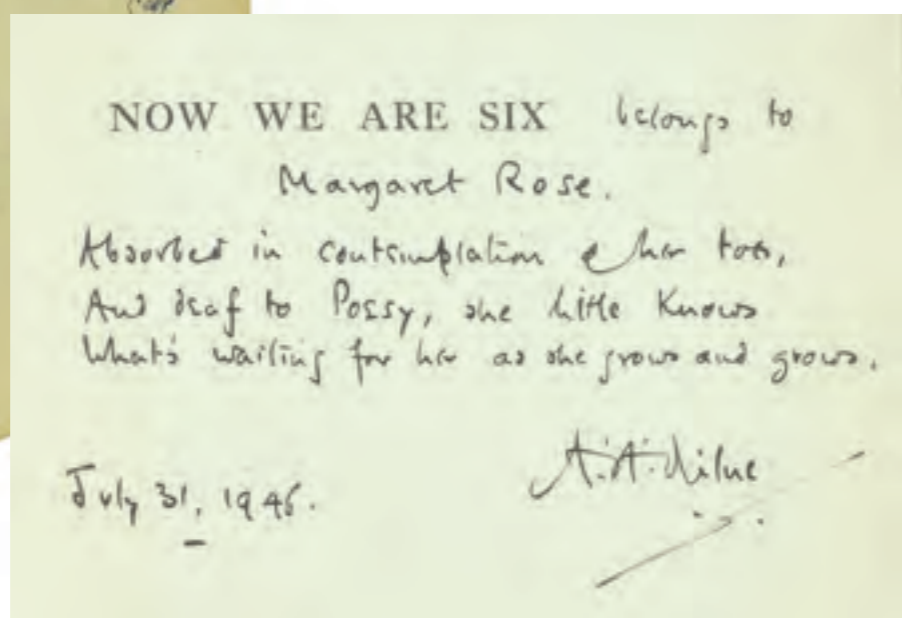 NOW WE ARE SIX belongs to
Margaret Rose.
Absorbed in contemplation of her toes,
And deaf to Possy, she little knows
What's waiting for her as she grows and grows.
A.A. Milne
July 31, 1946.